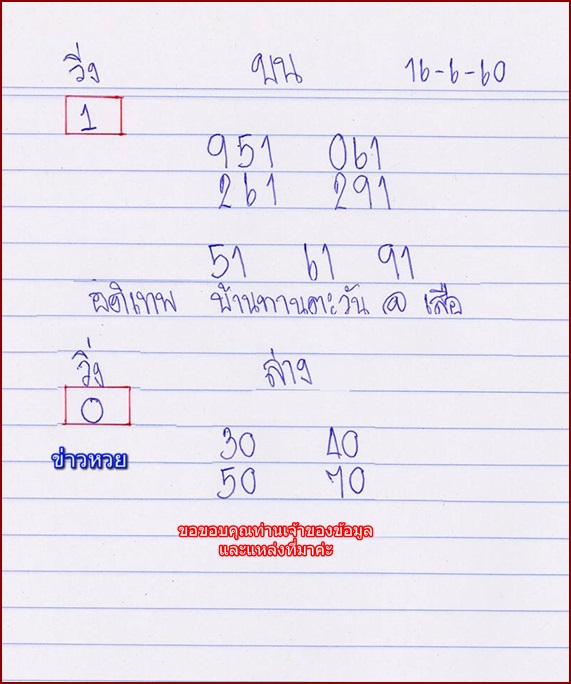 วิ่ง บน 16-6-60
1
951 061
261 291
51 61 91
อติเทพ บ้านทานตะวัน @ เสือ
วิ่ง ล่าง
0
30 40
ข่าวหวย
50 70
ขอขอบคุณท่านเจ้าของข้อมูล
และแหล่งที่มาค่ะ